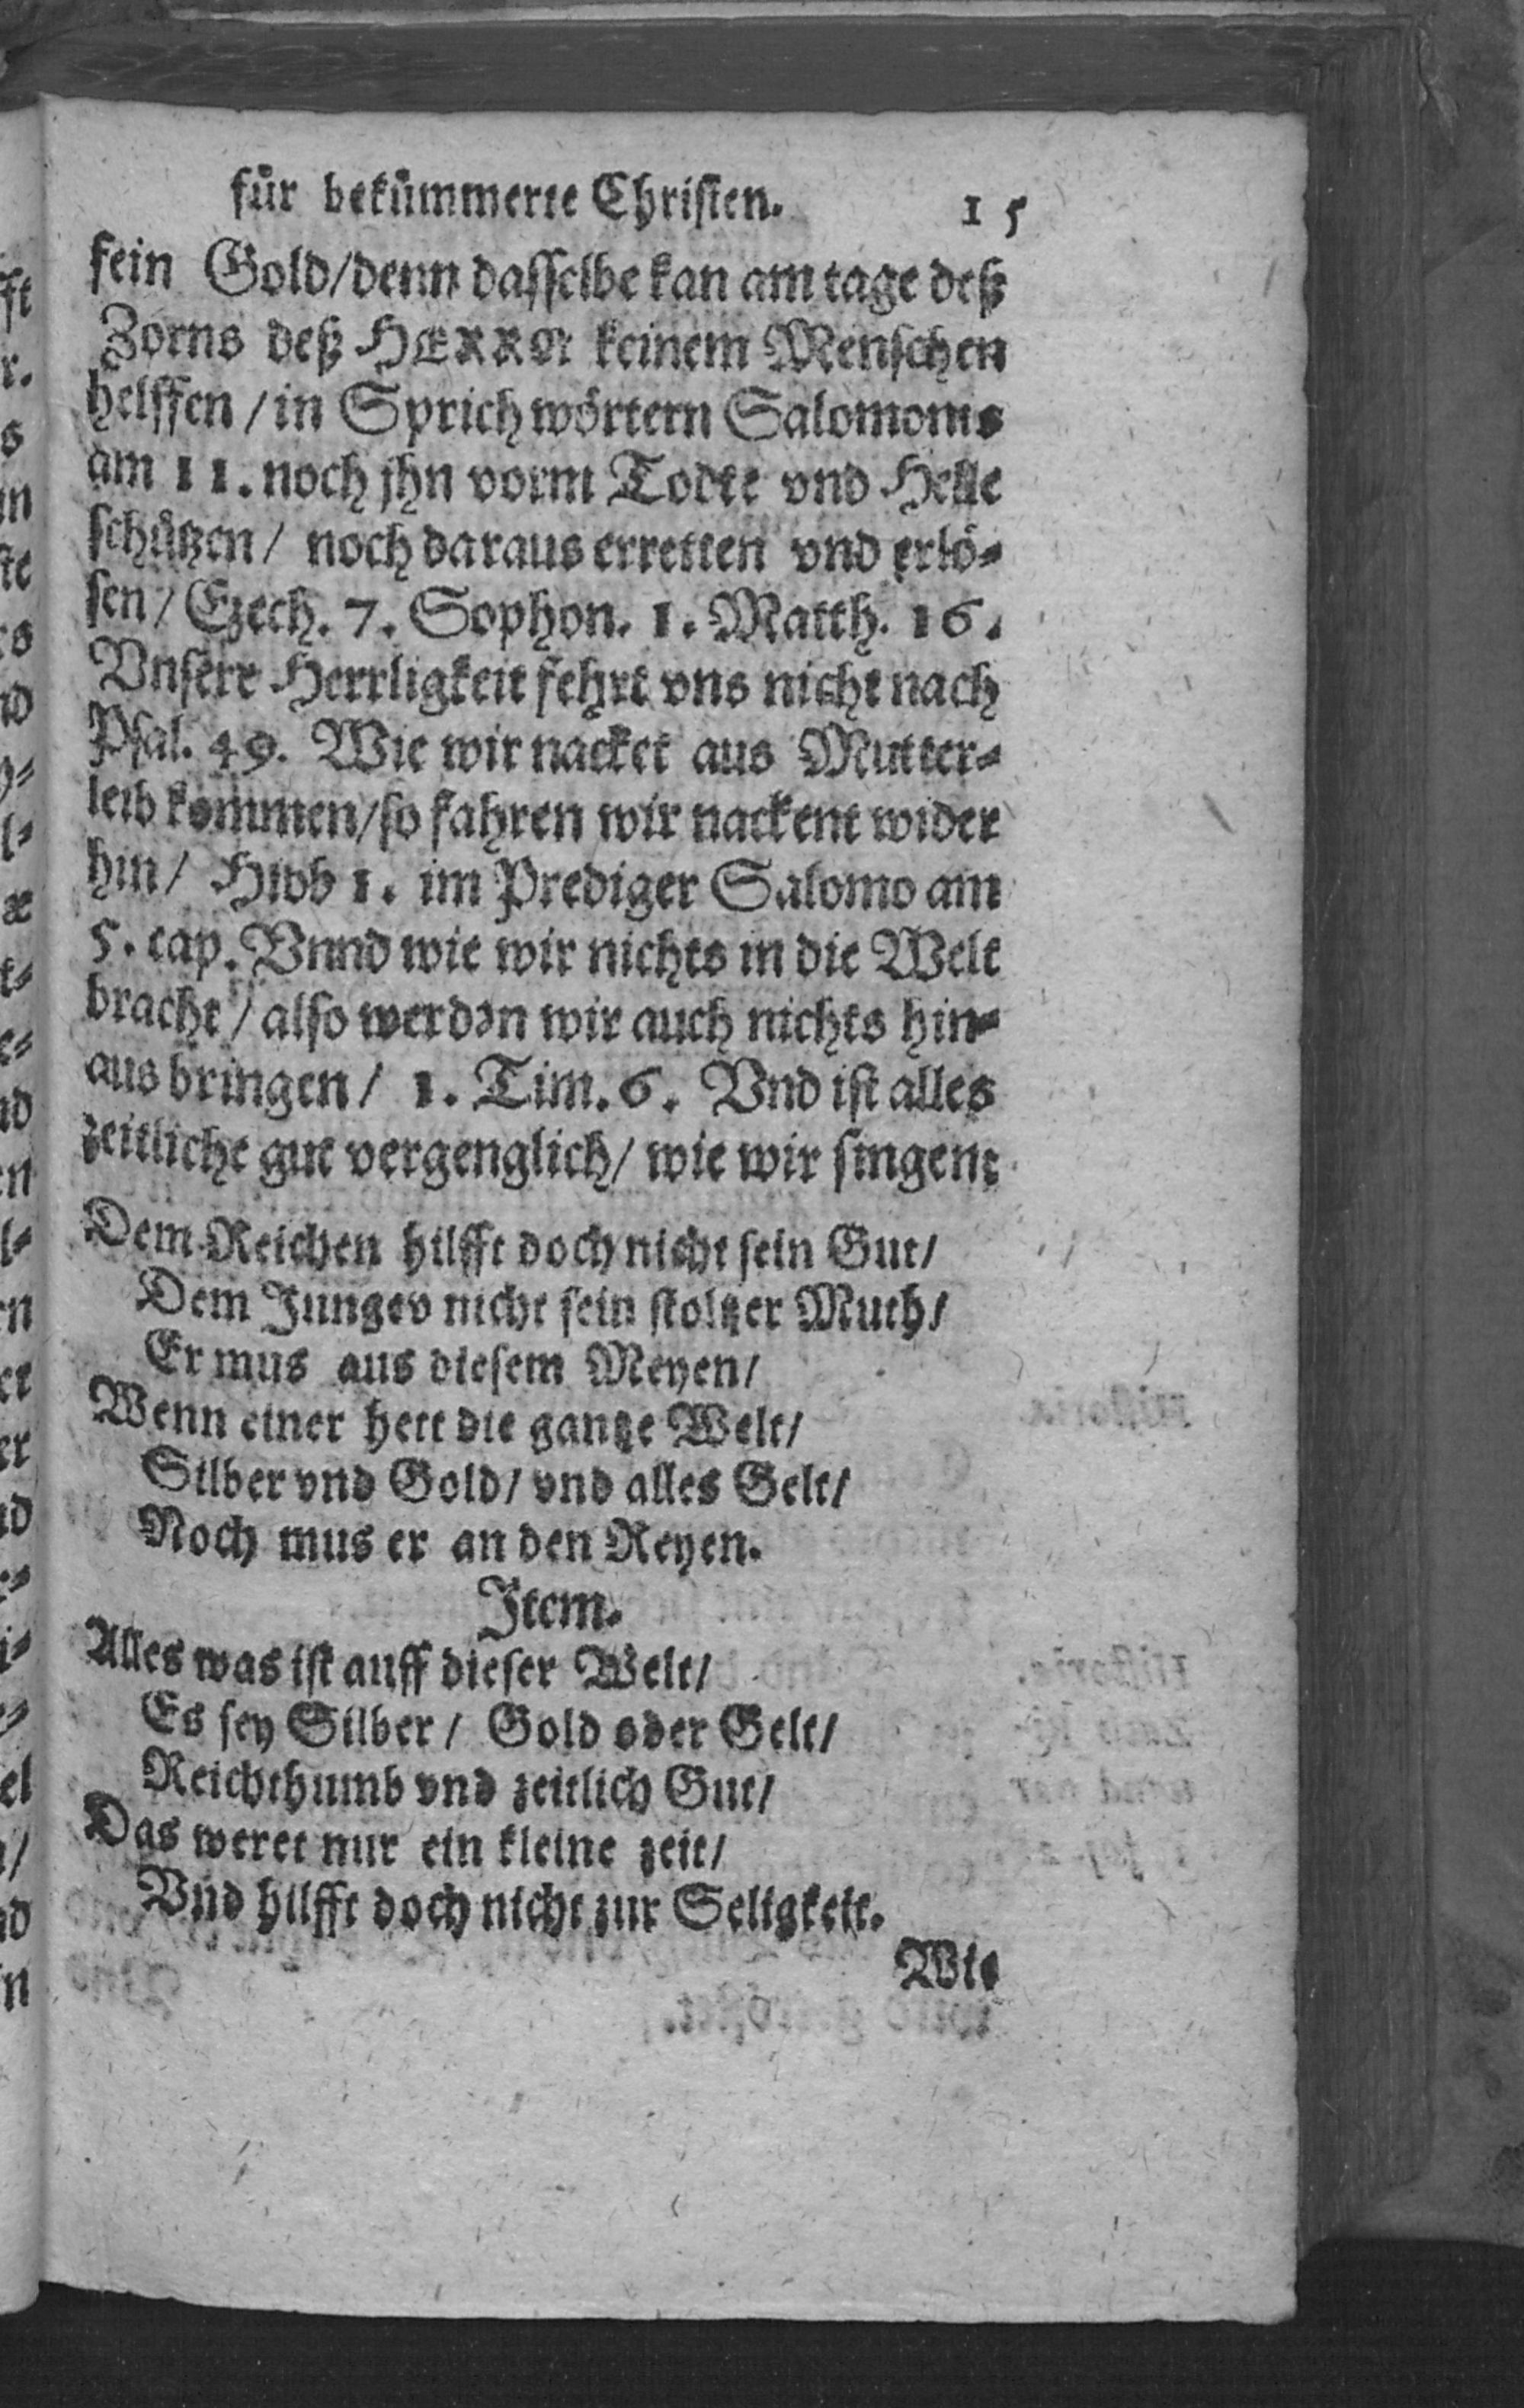 für bekümmerte Christen. 15
fein Gold/denn dasselbe kan am tage deß
Zorns deß HERRN keinem Menschen
helffen / in Sprichwörtern Salomons
am 11. noch jhn vorm Todte vnd Helle
schützen / noch daraus erretten vnd erlö⸗
sen / Ezech. 7. Sophon. 1. Matth. 16.
Vnsere Herrligkeit fehrt vns nicht nach
Psal. 49. Wie wir nacket aus Mutter⸗
leib kommen/so fahren wir nackent wider
hin / Hiob 1. im Prediger Salomo am
5. cap. Vnnd wie wir nichts in die Welt
bracht / also werden wir auch nichts hin⸗
aus bringen / 1. Tim. 6. Vnd ist alles
zeitliche gut vergenglich/ wie wir singen:
Dem Reichen hilfft doch nicht sein Gut/
Dem Jungev nicht sein stoltzer Muth/
Er mus aus diesem Meyen/
Wenn einer hett die gantze Welt/
Silber vnd Gold/ vnd alles Gelt/
Noch mus er an den Reyen.
Item.
Alles was ist auff dieser Welt/
Es sey Silber / Gold oder Gelt/
Reichthumb vnd zeitlich Gut/
Das weret nur ein kleine zeit/
Vnd hilfft doch nicht zur Seligkeit.
Wie